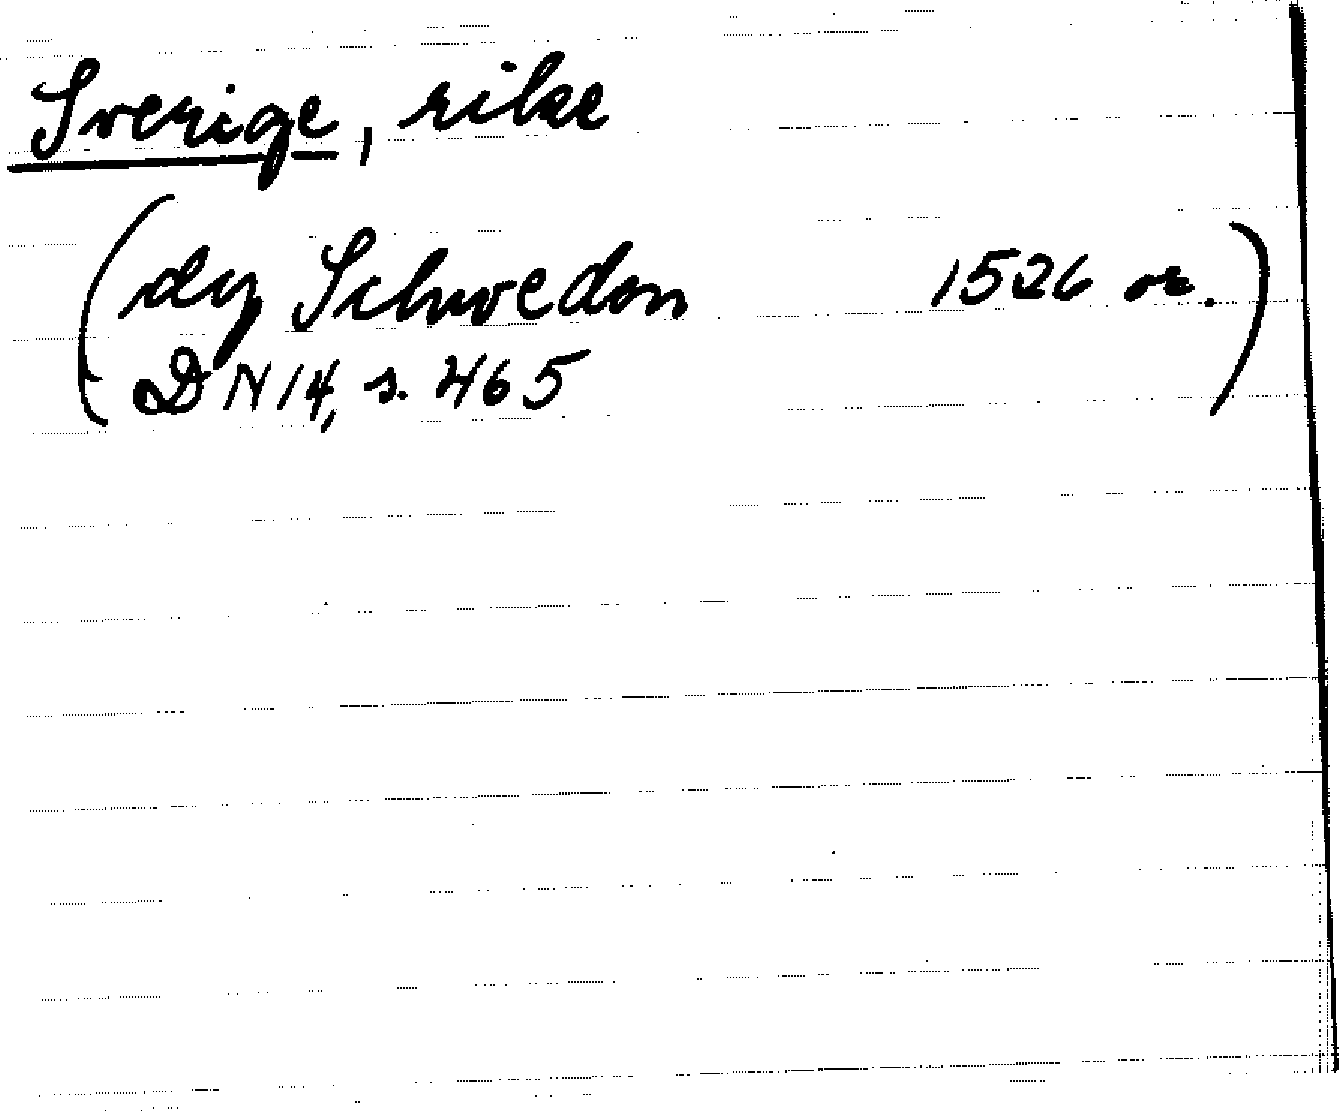 Sverige, rike
(dy Schwedon 1526 or.)
DN 14, s. 465